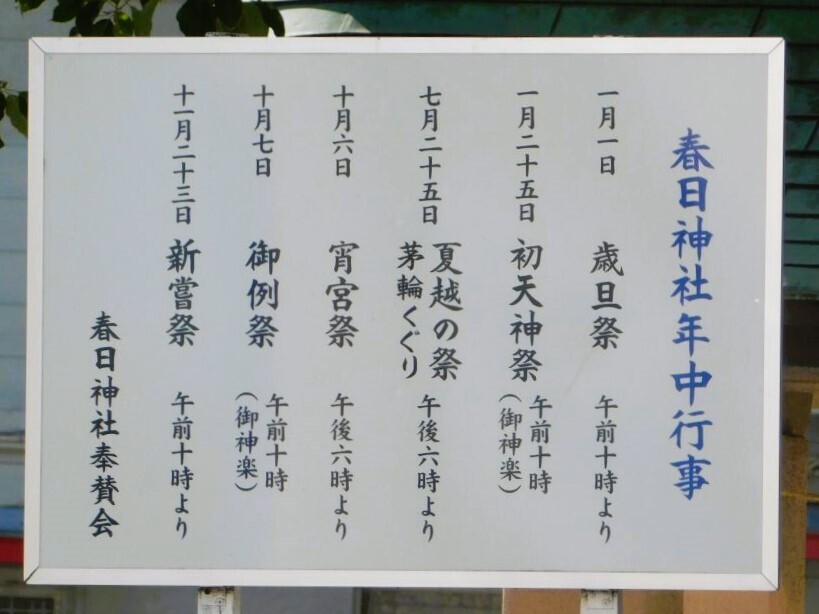 春日神社年中行事
一月一日 歳旦祭 午前十時より
一月二十五日 初天神祭 午前十時
(御神楽)
七月二十五日 夏越の祭
茅輪くぐり 午後六時より
十月六日 宵宮祭 午後六時より
十月七日 御例祭 午前十時
(御神楽)
十一月二十三日 新嘗祭 午前十時より
春日神社奉賛会